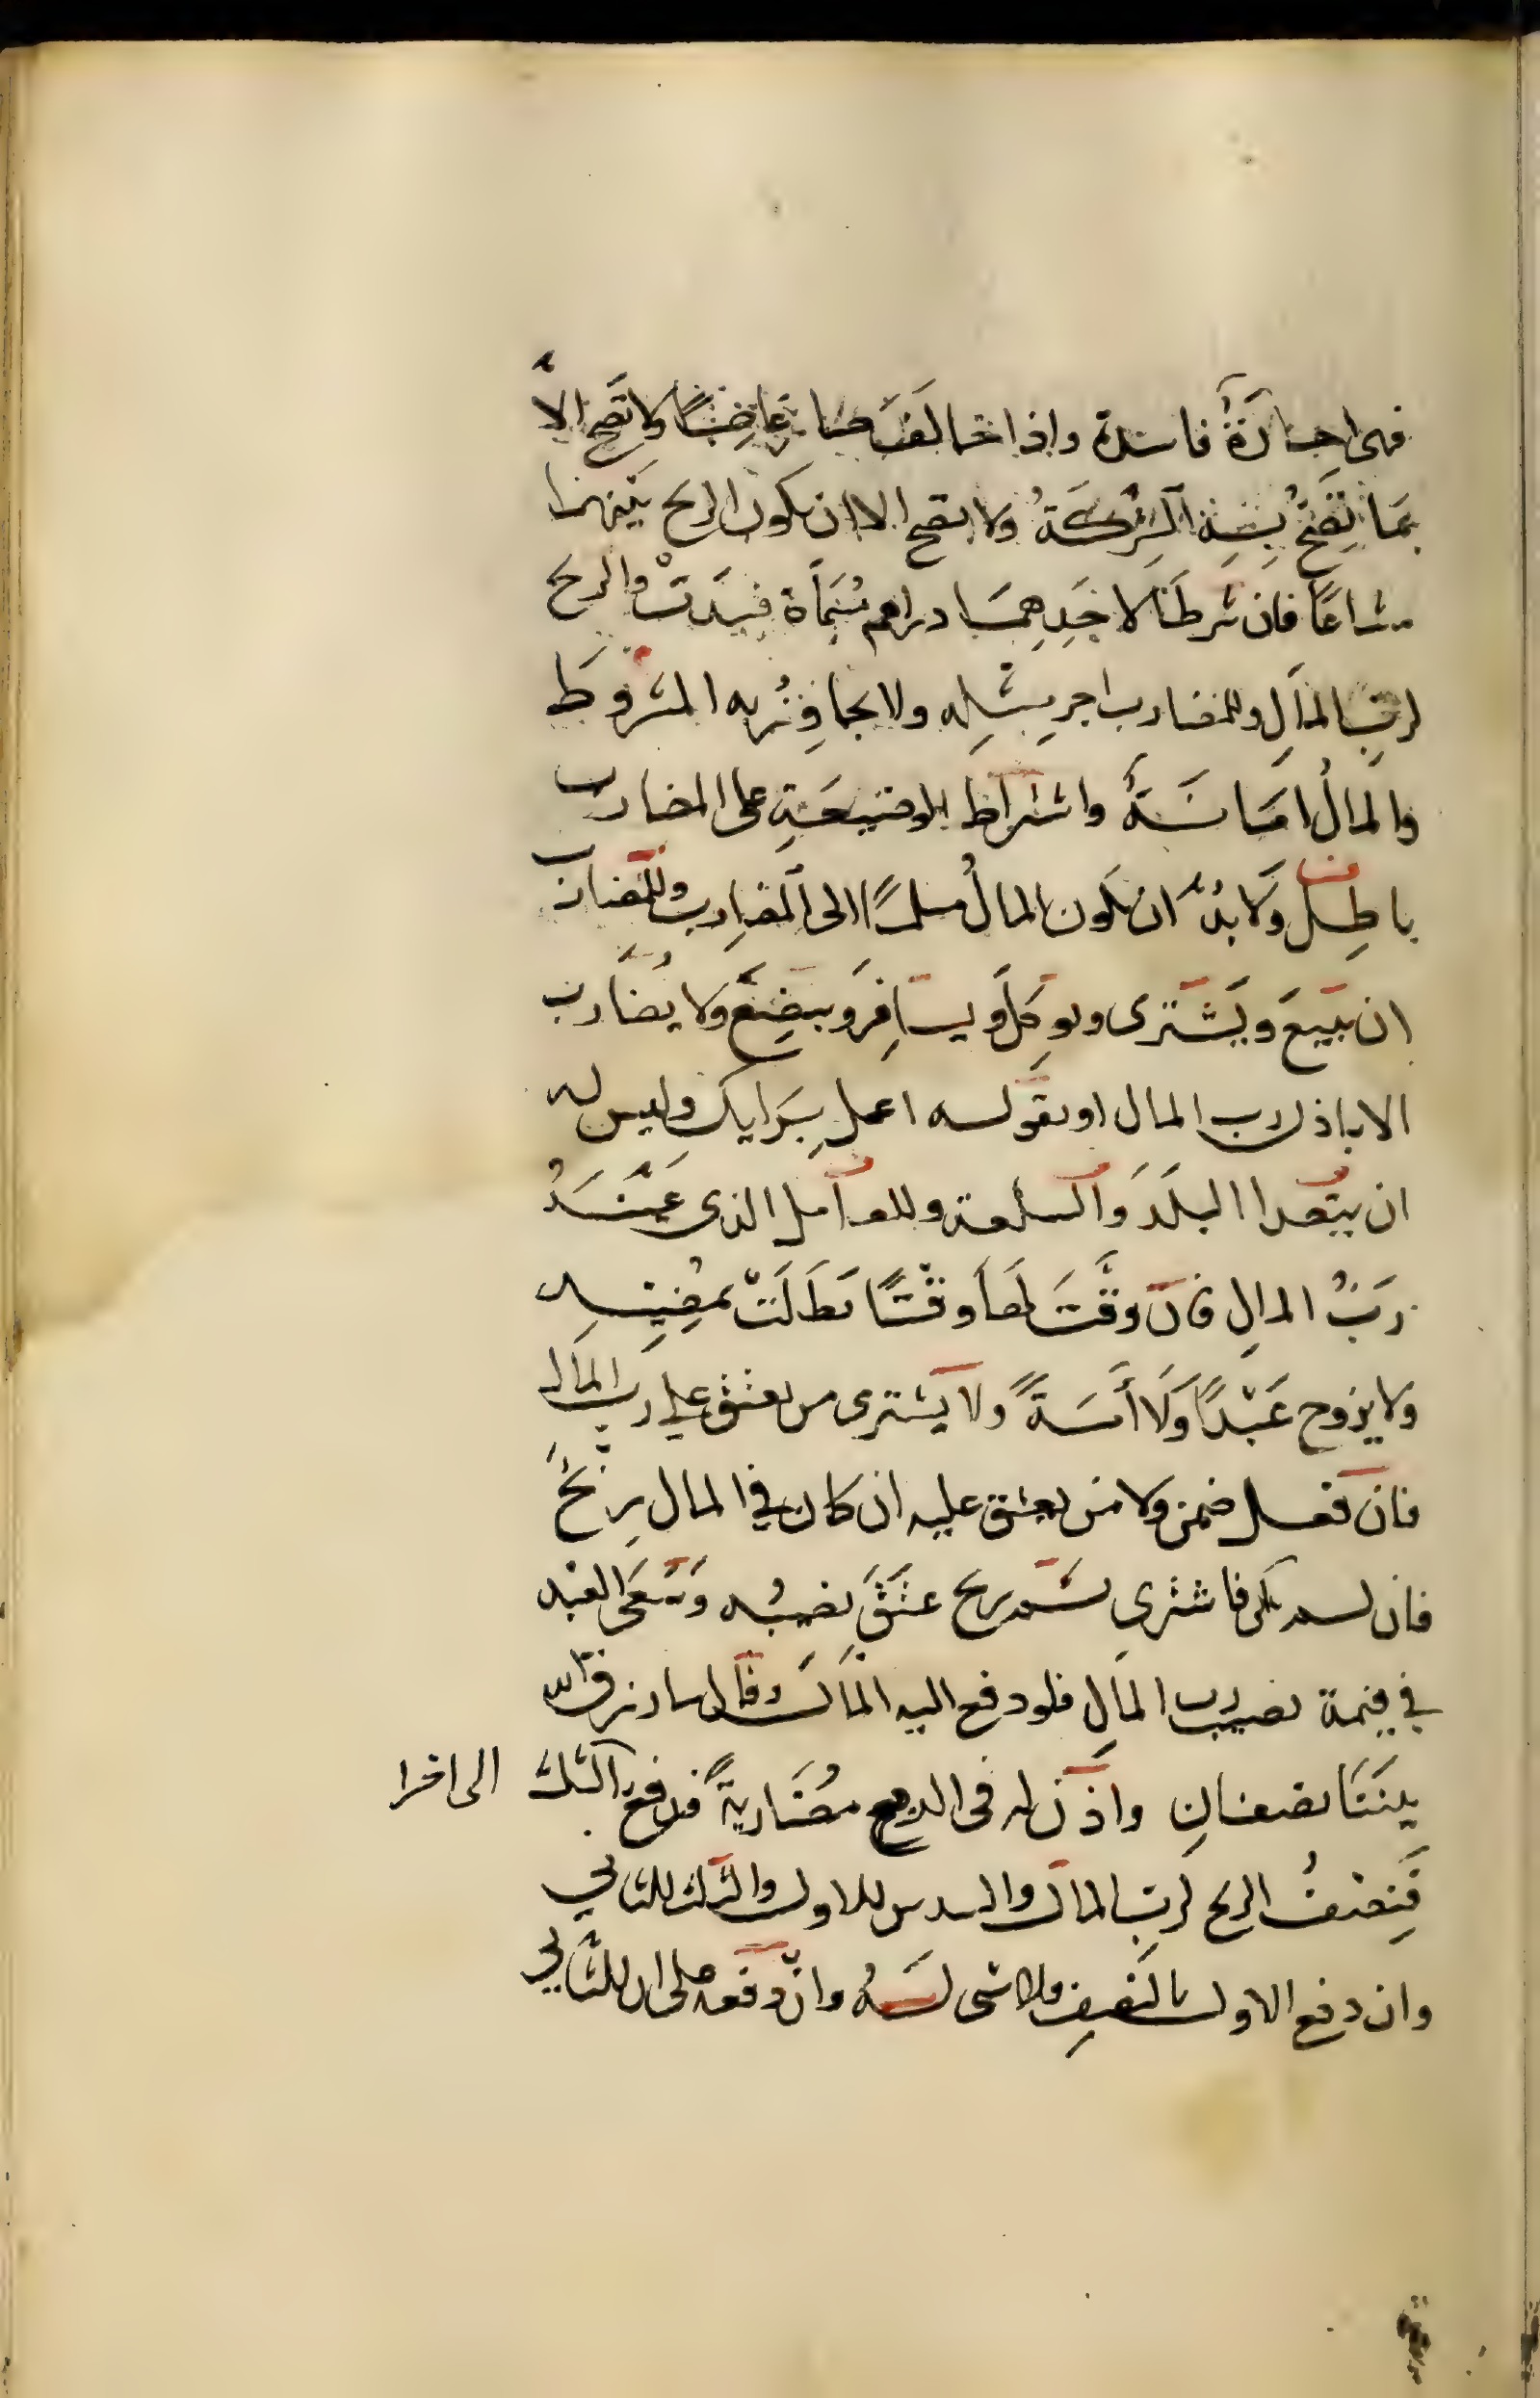 فهى اجارة فاسدة واذا خالف صار غاصبًا ولا تصح الا
بما تصح به الشركة ولا تصح الا ان يكون الربح بينهما
مشاعًا فان شرطا لاحدهما دراهم مسماة فسدت والربح
لرب المال وللمضارب اجر مثله ولا يجاوز به المشروط
والمال امانة واشتراط الوضيعة على المضارب
باطل ولا بد ان يكون المال مسلمًا الى المضارب وللمضارب
ان يبيع ويشترى ويوكل ويسافر ويبضع ولا يضارب
الا باذن رب المال او بقوله اعمل برايك وليس له
ان يتعدا البلد والسلعة والمعامل الذى عينه
رب المال فان وقت لها وقتًا بطلت بمضيه
ولا يزوج عبدًا ولا أمةً ولا يشترى من يعتق على رب المال
فان فعل ضمن ولا من يعتق عليه ان كان فى المال ربح
فان لم يكن فاشترى ثم ربح عتق نصيبه وسعى العبد
فى قيمة نصيب رب المال فلو دفع اليه المال وقال ما رزق الله
بيننا نصفان واذن له فى الدفع مضاربةً فدفع بالثلث الى اخرا
فنصف الربح لرب المال والسدس للاول والثلث للثانى
وان دفع الاول بالنصف فلا شى له وان دفعه على ان للثانى